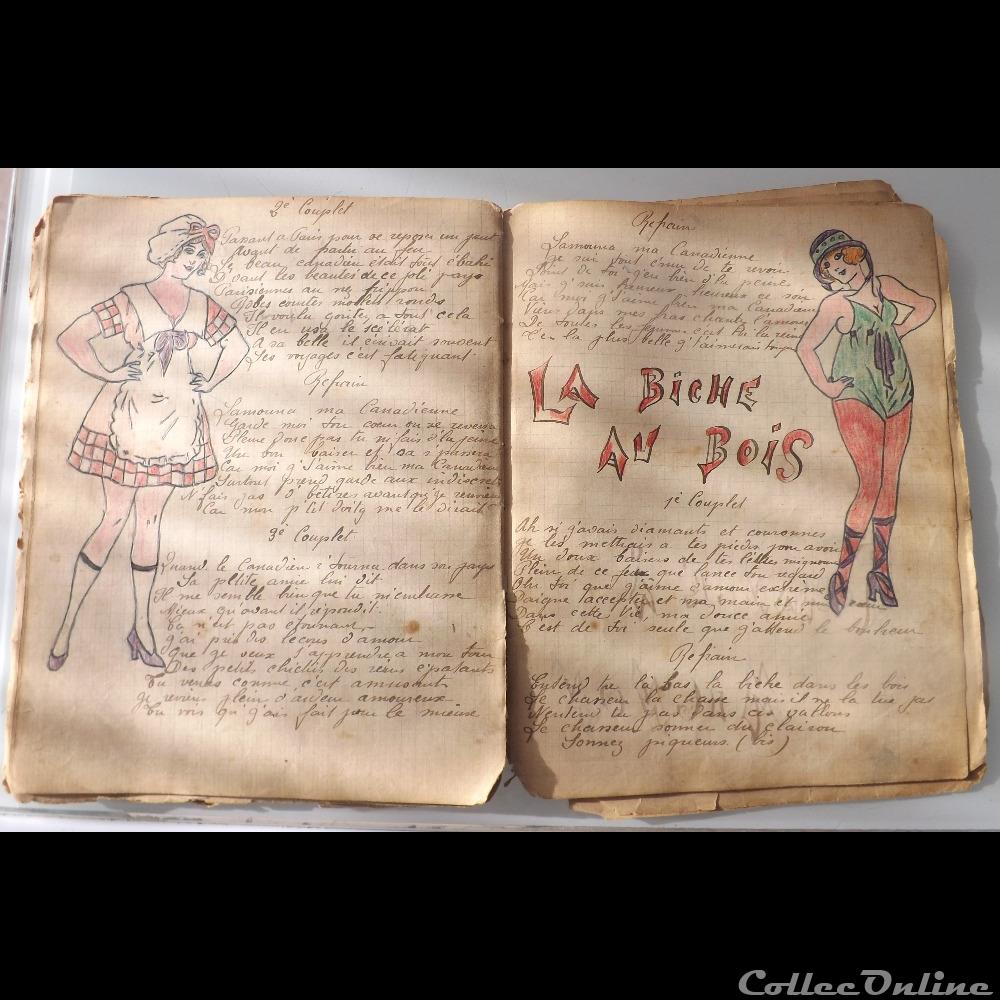 2e Couplet
Passant a Paris pour se reposer un peut
Avant de partir au feu
Le beau canadien était tout ébahi
Devant les beautés de ce joli pays
Parisiennes au nez frippon
Robes courtes mollets ronds
Il voulu goûter a tout cela
Il en usa le scélérat
A sa belle il écrivait souvent
Les voyages c'est fatiguant
Refrain
ma Canadienne
Garde moi ton cœur on se reverra
Pleure donc pas tu m'fais d'la peine
Un bon baiser et ça s'passera
Car moi q j'aime bien ma Canadienne
Surtout prend garde aux indiscrets
N'fais pas d'bêtises avant que je revienne
Car mon p'tit doitg me le dirait
3e Couplet
Quand le Canadien s'tourna dans son pays
Sa ptite amie lui dit
Il me semble bien que tu m'embrasse
Mieux qu'avant il répondit
Ca n'est pas étonnant
j'ai pris des leçons d'amour
Que je veux t'apprendre a mon tour
Des petits chichis des riens épatants
Tu verras comme c'est amusant
Je reviens plein d'ardeur amoureuse
Tu vois qu'j'ais fait pour le mieux
Refrain
ma Canadienne
Je suis tout ému de te revoir
Loint de toi j'eu bien d'la peine
Mais j'suis heureux ce soir
Car moi q j'aime bien ma Canadienne
Viens dans mes bras chanter l'amour
De toutes les femmes c'est toi la reine
C'en la plus belle q j'aimerais toujours
LA BICHE
AU BOIS
1e Couplet
Ah si j'avais diamants et couronnes
Je les mettrais a tes pieds pour avoir
Un doux baisers de tes lèvres mignonnes
Plein de ce feux que lance ton regard
Oh toi que j'aime d'amour extrême
Daigne accepter et ma main et mon cœur
Dans cette vie, ma douce amie
C'est de toi seule que j'attend le bonheur
Refrain
Entend tu là bas la biche dans les bois
Le chasseur la chasse mais il ne la tue pas
N'entend tu pas dans ces vallons
Le chasseur sonner du clairon
Sonnez piqueurs (bis)
CollecOnline